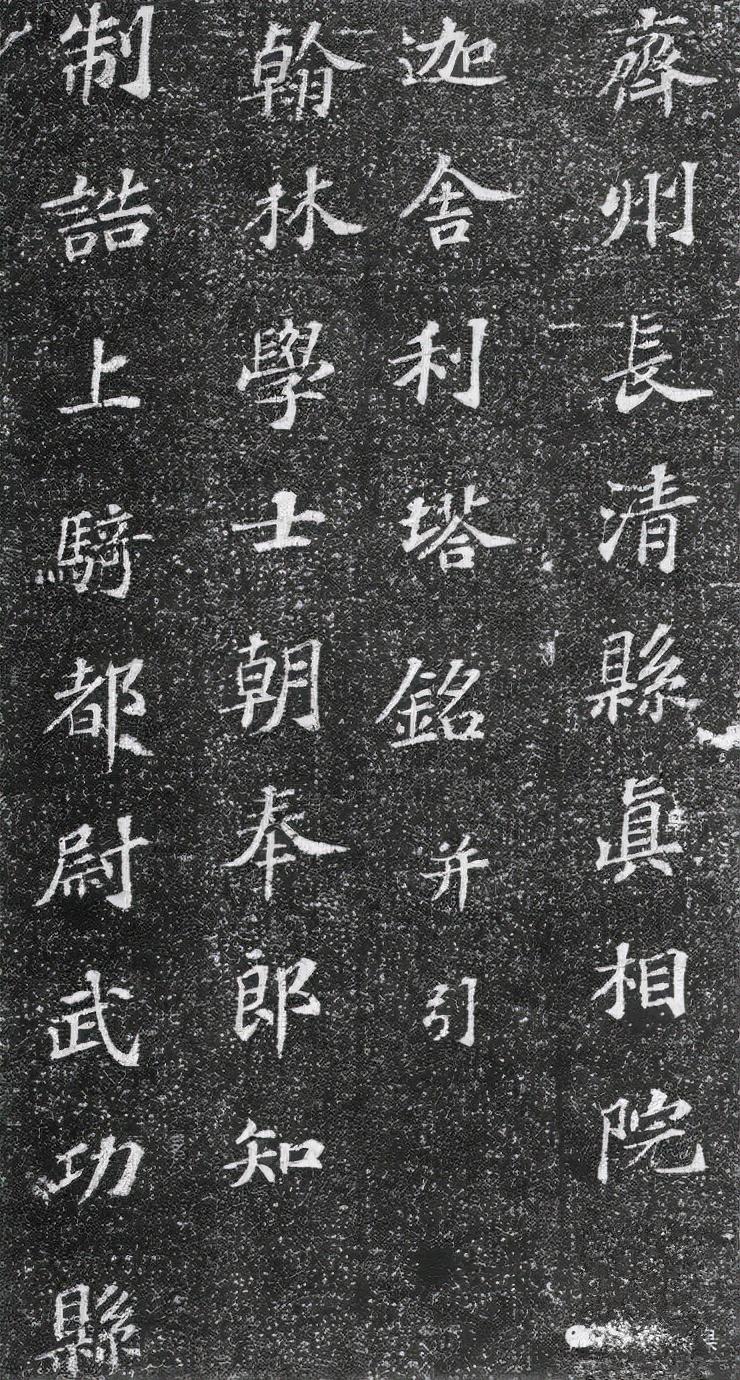 齊州長清縣眞相院
迦舍利塔銘并引
翰林學士朝奉郎知
制誥上騎都尉武功縣